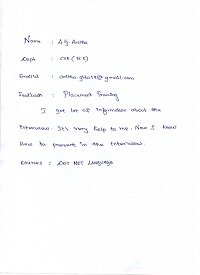 Name : A.G. Anitha
Dept : CSE (M.E)
Email id : @gmail.com
Feedback : Placement Training
I got lot of information about the
interview. It's very help to me. Now I know
How to present in the interview.
Courses : DOT NET Language